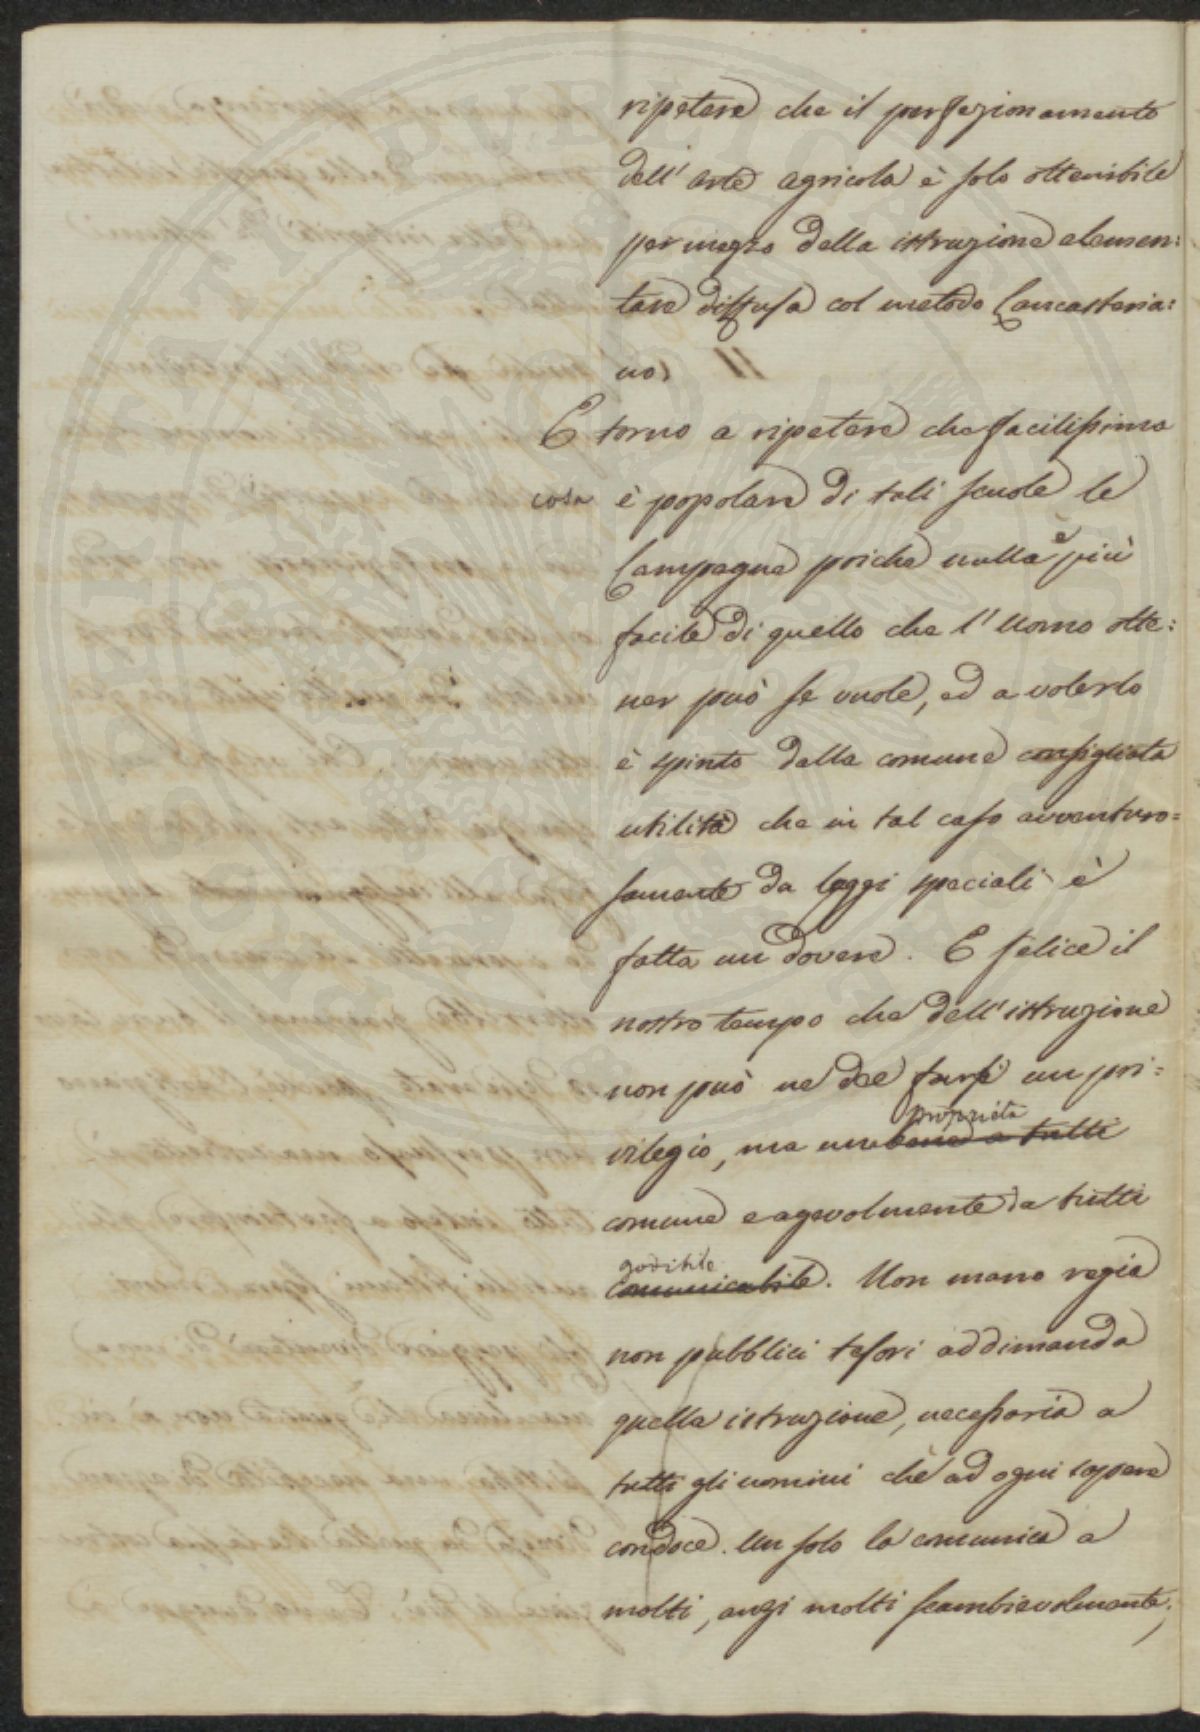 ripetere che il perfezionamento
dell'arte agricola è solo ottenibile
per mezzo della istruzione elemen:
tare diffusa col metodo Lancasteria:
no.
E torno a ripetere che facilissima
cosa è popolare di tali scuole le
Campagne poichè nulla è più
facile di quello che l'Uomo otte:
ner può se vuole, ed a volerlo
è spinto dalla comune consigliata
utilità che in tal caso avventuro=
samente da leggi speciali è
fatta un dovere. E felice il
nostro tempo che dell'istruzione
non può ne dee farsi un pri:
vilegio, ma una proprietà bene a tutti
comune e agevolmente da tutti
godibile comunicabile. Non mano regia
non pubblici tesori addimanda
quella istruzione, necessaria a
tutti gli uomini chè ad ogni sapere
conduce. Un solo la comunica a
molti, anzi molti scambievolmente,